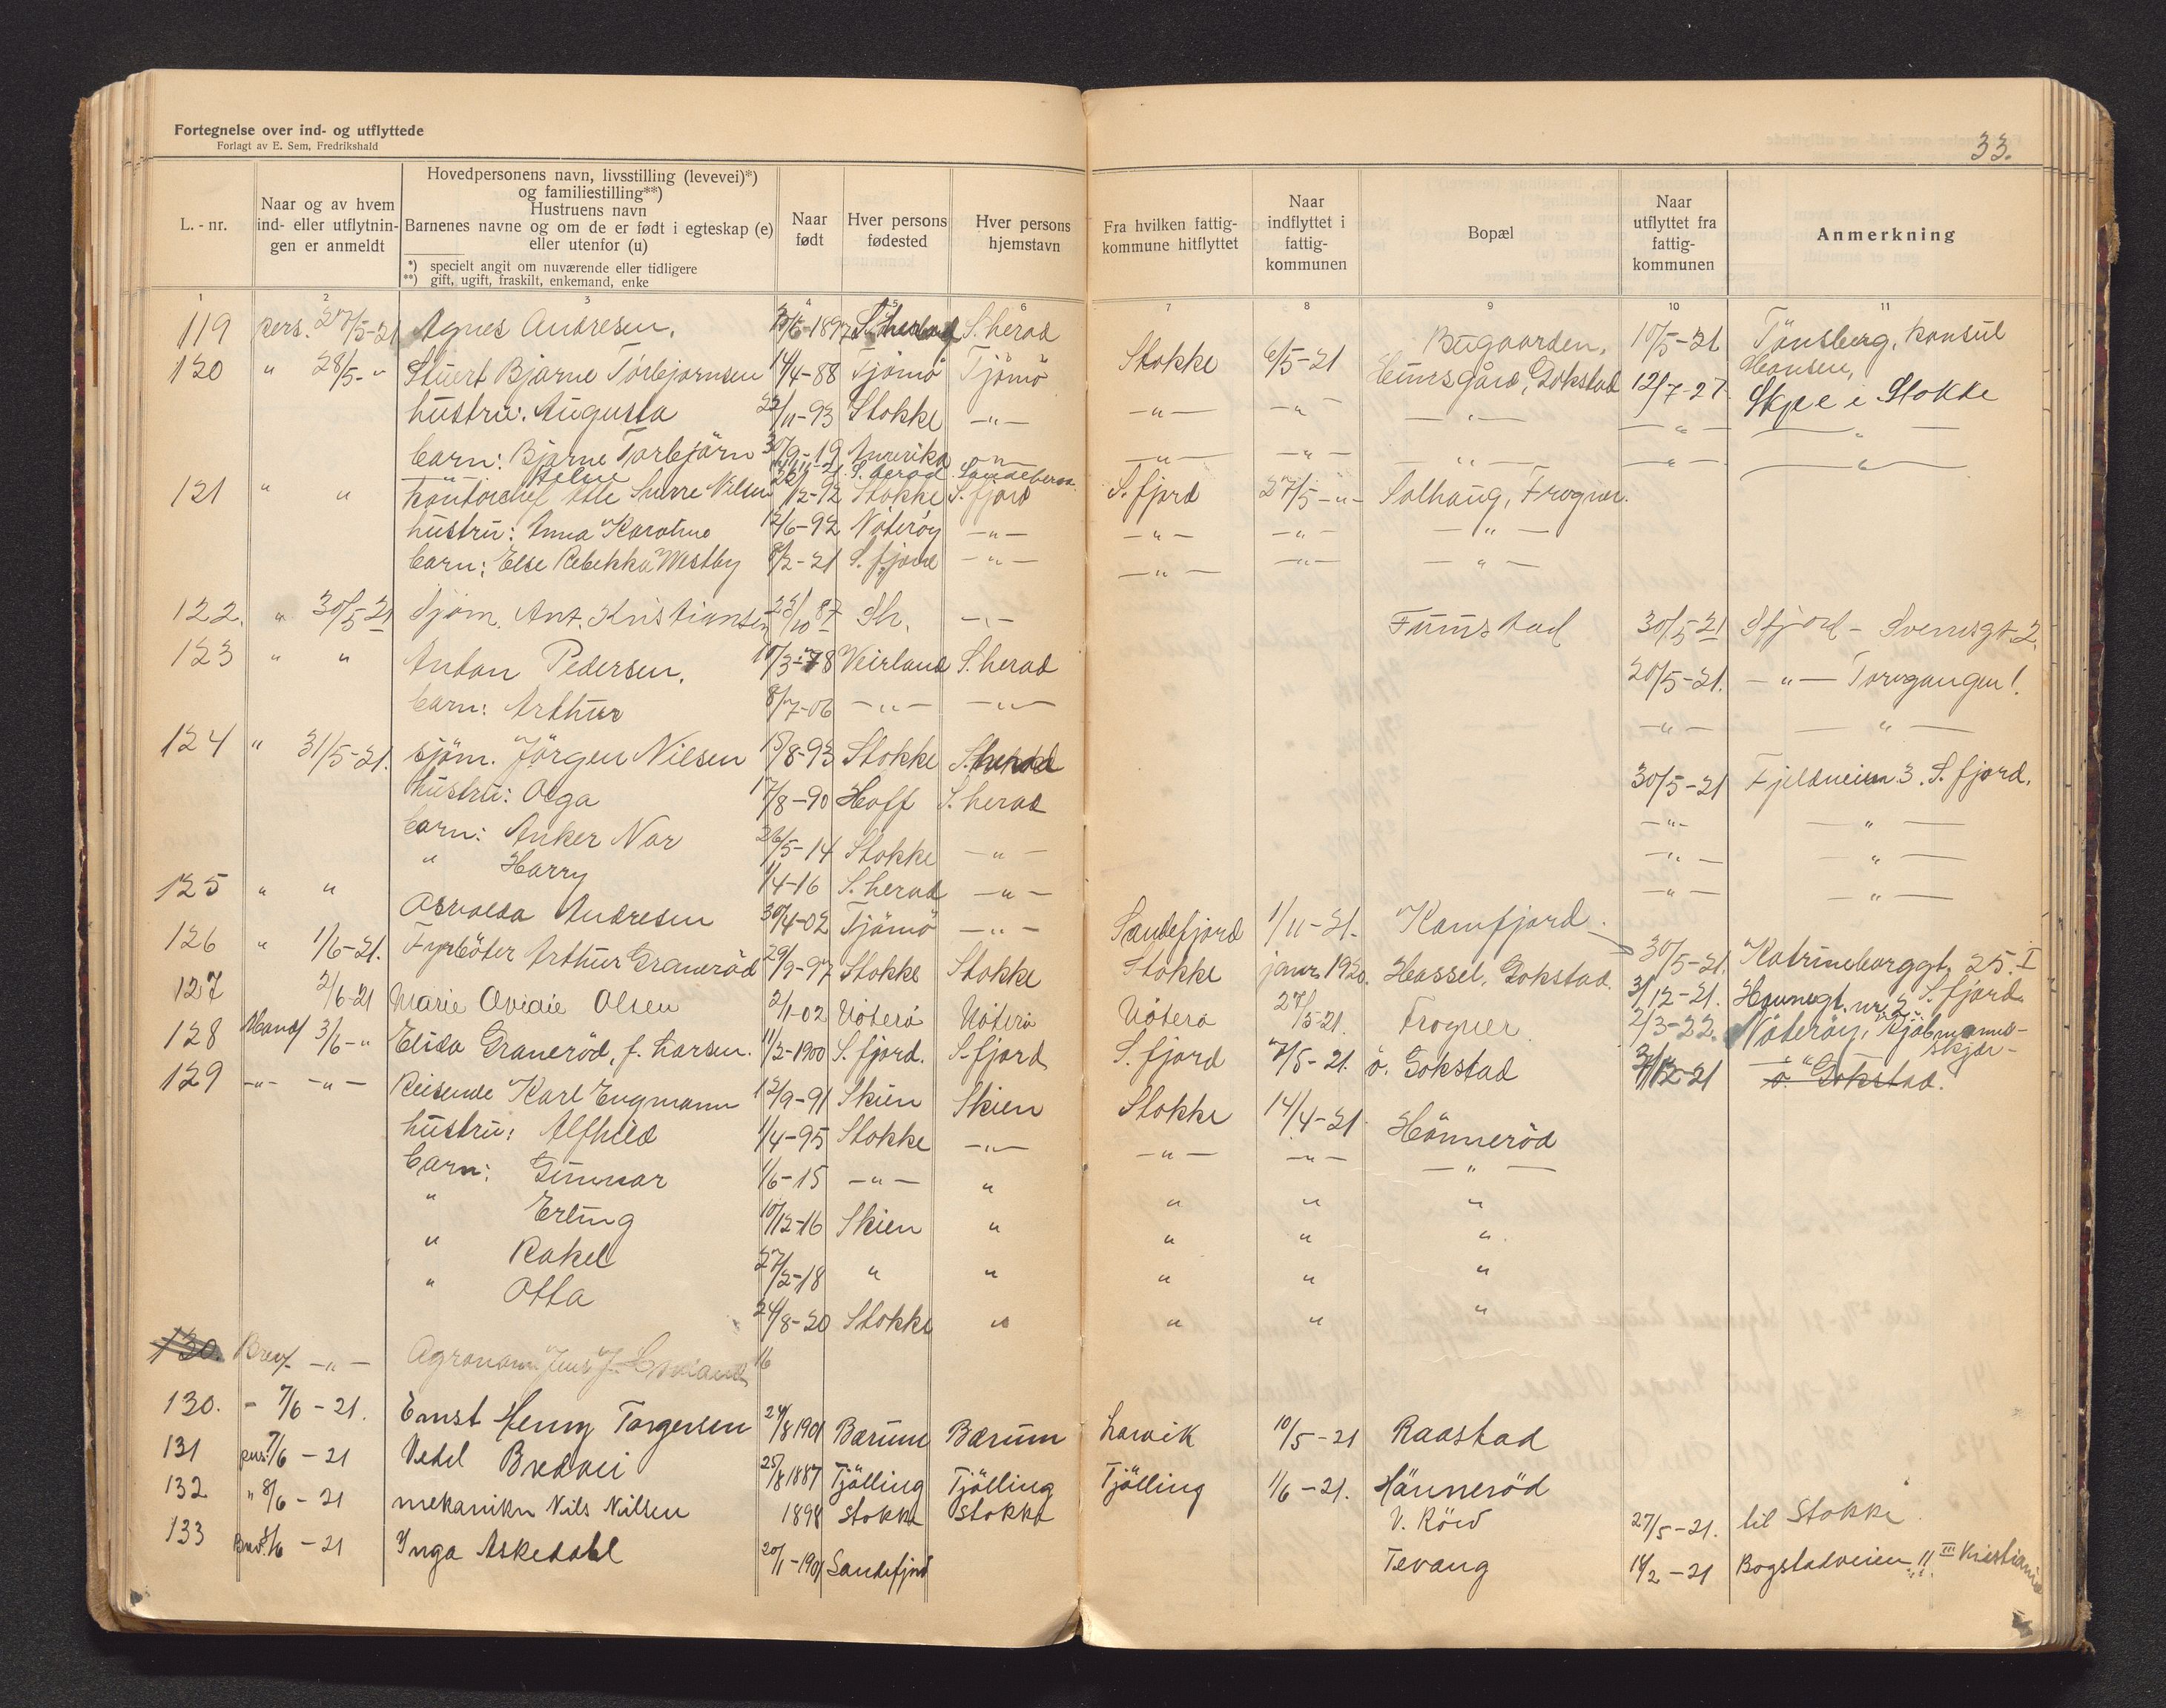 Fortegnelse over ind- og utflyttede
Forlagt av E. Sem, Fredrikshald
33.
L.-nr.
Naar og av hvem ind- eller utflytningen er anmeldt
Hovedpersonens navn, livsstilling (levevei)*)
og familiestilling**)
Hustruens navn
Barnenes navne og om de er født i egteskap (e)
eller utenfor (u)
*) specielt angit om nuværende eller tidligere
**) gift, ugift, fraskilt, enkemand, enke
Naar født
Hver persons fødested
Hver persons hjemstavn
Fra hvilken fattigkommune hitflyttet
Naar indflyttet i fattigkommunen
Bopæl
Naar utflyttet fra fattigkommunen
Anmerkning
1 2 3 4 5 6 7 8 9 10 11
119 pers. 27/5-21 Agnes Andresen. /6-1897 S. herad Bugaarden, 10/5-21 Tönsberg, Konsul Hansen,
120 " 28/5-" Stuert Bjarne Torbjornsen 14/4-88 Tjömö Tjömö Stokke 6/5-21 Hunsgård, Gokstad 12/7-27 Skjee i Stokke
hustru: Augusta 22/11-93 Stokke -"- -"- -"- -"- -"- -"-
barn: Bjarne Torbjörn 30/9-19 Amerika -"- -"- -"- -"- -"- -"-
-"- -21 S. herad Sandeherad
121 " " Kontorchef Sverre Nilsen /12-92 Stokke S. fjord S. fjord 27/5-"- Solhaug, Frogner.
hustru: Anna Karoline 12/6-92 Nöteröy -"- -"- -"- -"-
barn: Else Rebekka Westby 8/2-21 S. fjord -"- -"- -"- -"-
122. " 30/5-21 Sjöm. Ant. Kristiansen 23/10 87 Sh. -"- Furustad 30/5 21 Sfjord - Svensgt. 2.
123 " " Anton Pedersen. 10/3-78 Veirland S. herad 20/5-21. -"- Torvgangen 1.
barn: Arthur 8/7-06 -"- -"- -"- -"-
124 " 31/5-21. sjöm. Jörgen Nilsen 15/8-93 Stokke S. herad 30/5-21 Fjeldveien 3. S. fjord.
hustru: Olga 17/8-90 Hoff S. herad -"- -"-
barn: Anker Nor 26/5-14 Stokke -"- -"- -"-
" Harry 1/4-16 S. herad -"- -"- -"-
125 " " Osvalda Andresen 30/4-02 Tjömö -"- Sandefjord 1/11-21. Kamfjord. 30/5-21. Katrineborggt. 25. I S. fjord
126 " 1/6-21. Fyrböter Arthur Graneröd 29/9-97 Stokke Stokke Stokke janr. 1920. Hassel, Gokstad. 31/12-21. nr. 2
127 2/6-21 Marie Ovidie Olsen 2/1-02 Nöterö Nöterö Nöterö 27/5-21. Frogner 2/3-22. Nöteröy, Kjöbmannsskjær-
128 Mand 3/6-" Elida Graneröd, f. Larsen. 11/2-1900 S. fjord. S. fjord S. fjord 7/5-21. ö. Gokstad 31/12-21 ö. Gokstad.
129 -"- -"- Reisende Karl Engmann 12/9-91 Skien Skien Stokke 14/4-21 Hönneröd
hustru: Alfhild 1/4-95 Stokke -"- -"- -"- -"-
barn: Gunnar 1/6-15 -"- " " " "
" Erling 10/12-16 Skien " " " "
" Rakel 27/2-18 " " " " "
" Otta 24/8-20 Stokke " " " "
130. Brev -"- Agronom Jens J.
130. - 7/6-21. Ernst Henry Torgersen 24/8 1901 Bærum Bærum Larvik 10/5-21 Raastad
131 pers. 7/6-21 Vedel Bredvei 25/8 1887 Tjölling Tjölling Tjölling 1/6-21. Hänneröd
132 " 8/6-21 mekaniker Nils Nilsen 1898 Stokke Stokke V. Röed 27/5-21. til Stokke
133 Brev. 8/6-21 Inga Askedahl 20/1-1901 Sandefjord Tevang 14/2-21 Bogstadveien 11 III Kristiania